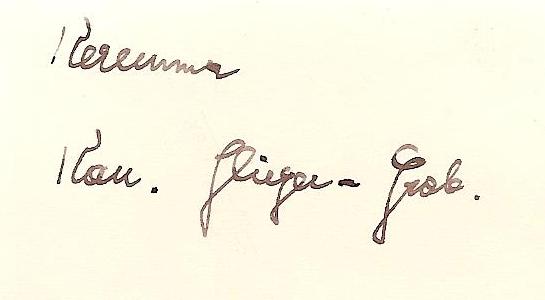 Keremma
Kan. Flieger-Grab.